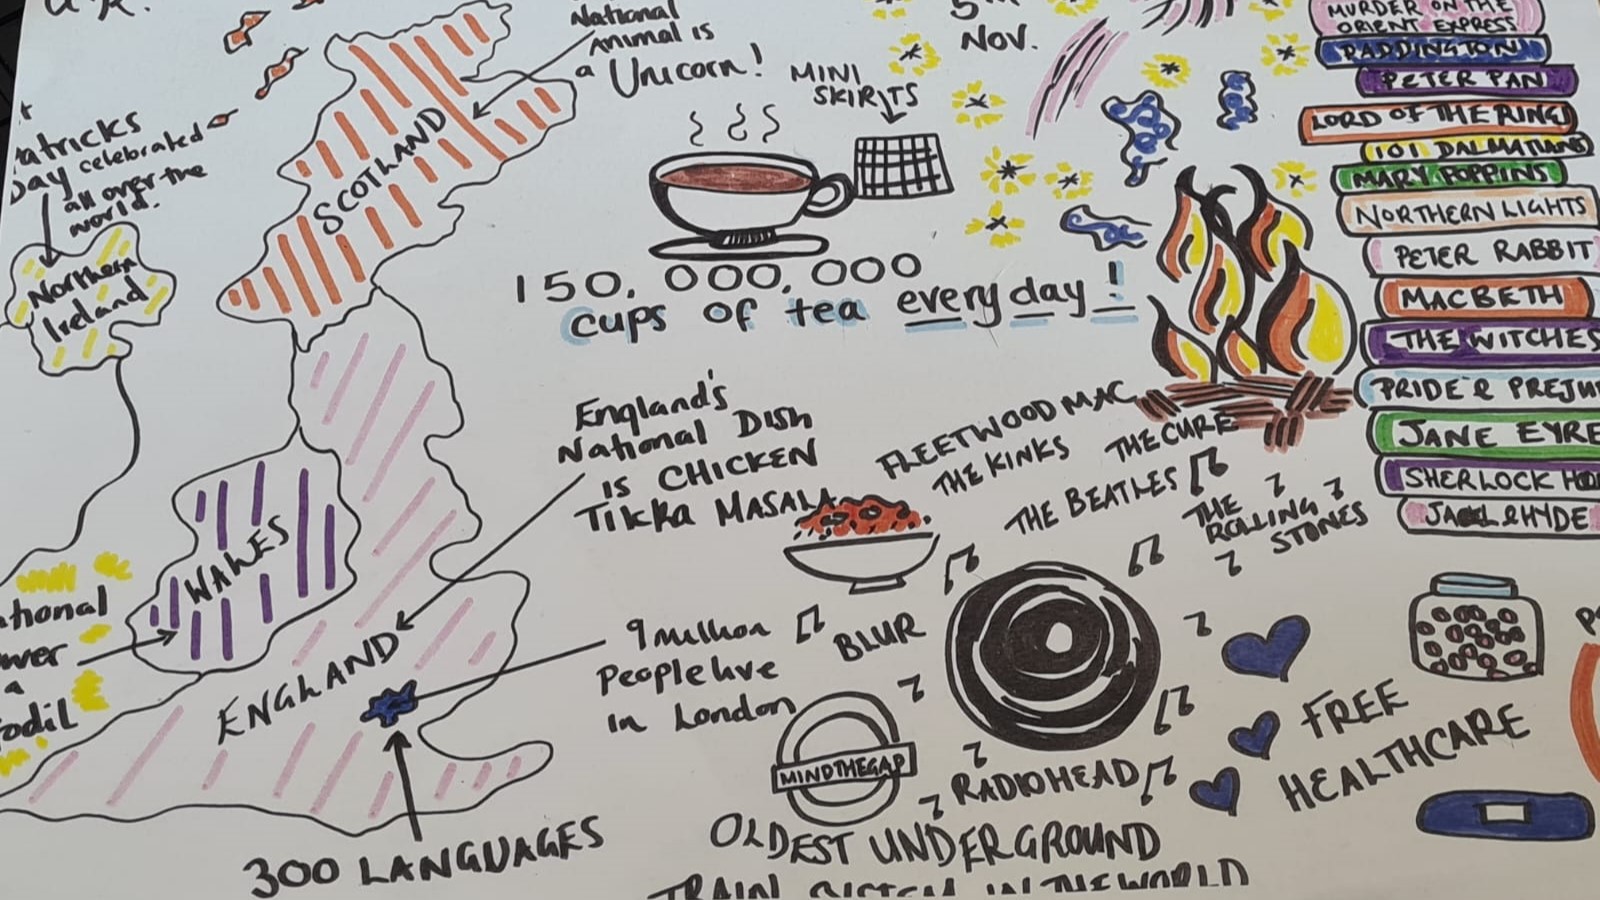 U.K.
National
Animal is
a Unicorn!
5TH
NOV.
MINI
SKIRTS
atricks
Day celebrated
all over the
world.
Northern
Ireland
SCOTLAND
150,000,000
cups of tea every day!
England's
National Dish
is CHICKEN
Tikka MASALA
WALES
ational
ower
a
fodil
ENGLAND
9 million
People live
in London
300 LANGUAGES
FLEETWOOD MAC
THE KINKS
THE CURE
THE BEATLES
THE
ROLLING
STONES
BLUR
RADIOHEAD
MIND THE GAP
OLDEST UNDERGROUND
TRAIN SYSTEM IN THE WORLD
FREE
HEALTHCARE
MURDER ON THE
ORIENT EXPRESS
PADDINGTON
PETER PAN
LORD OF THE RING
101 DALMATIANS
MARY POPPINS
NORTHERN LIGHTS
PETER RABBIT
MACBETH
THE WITCHES
PRIDE & PREJU
JANE EYRE
SHERLOCK HO
&HYDE